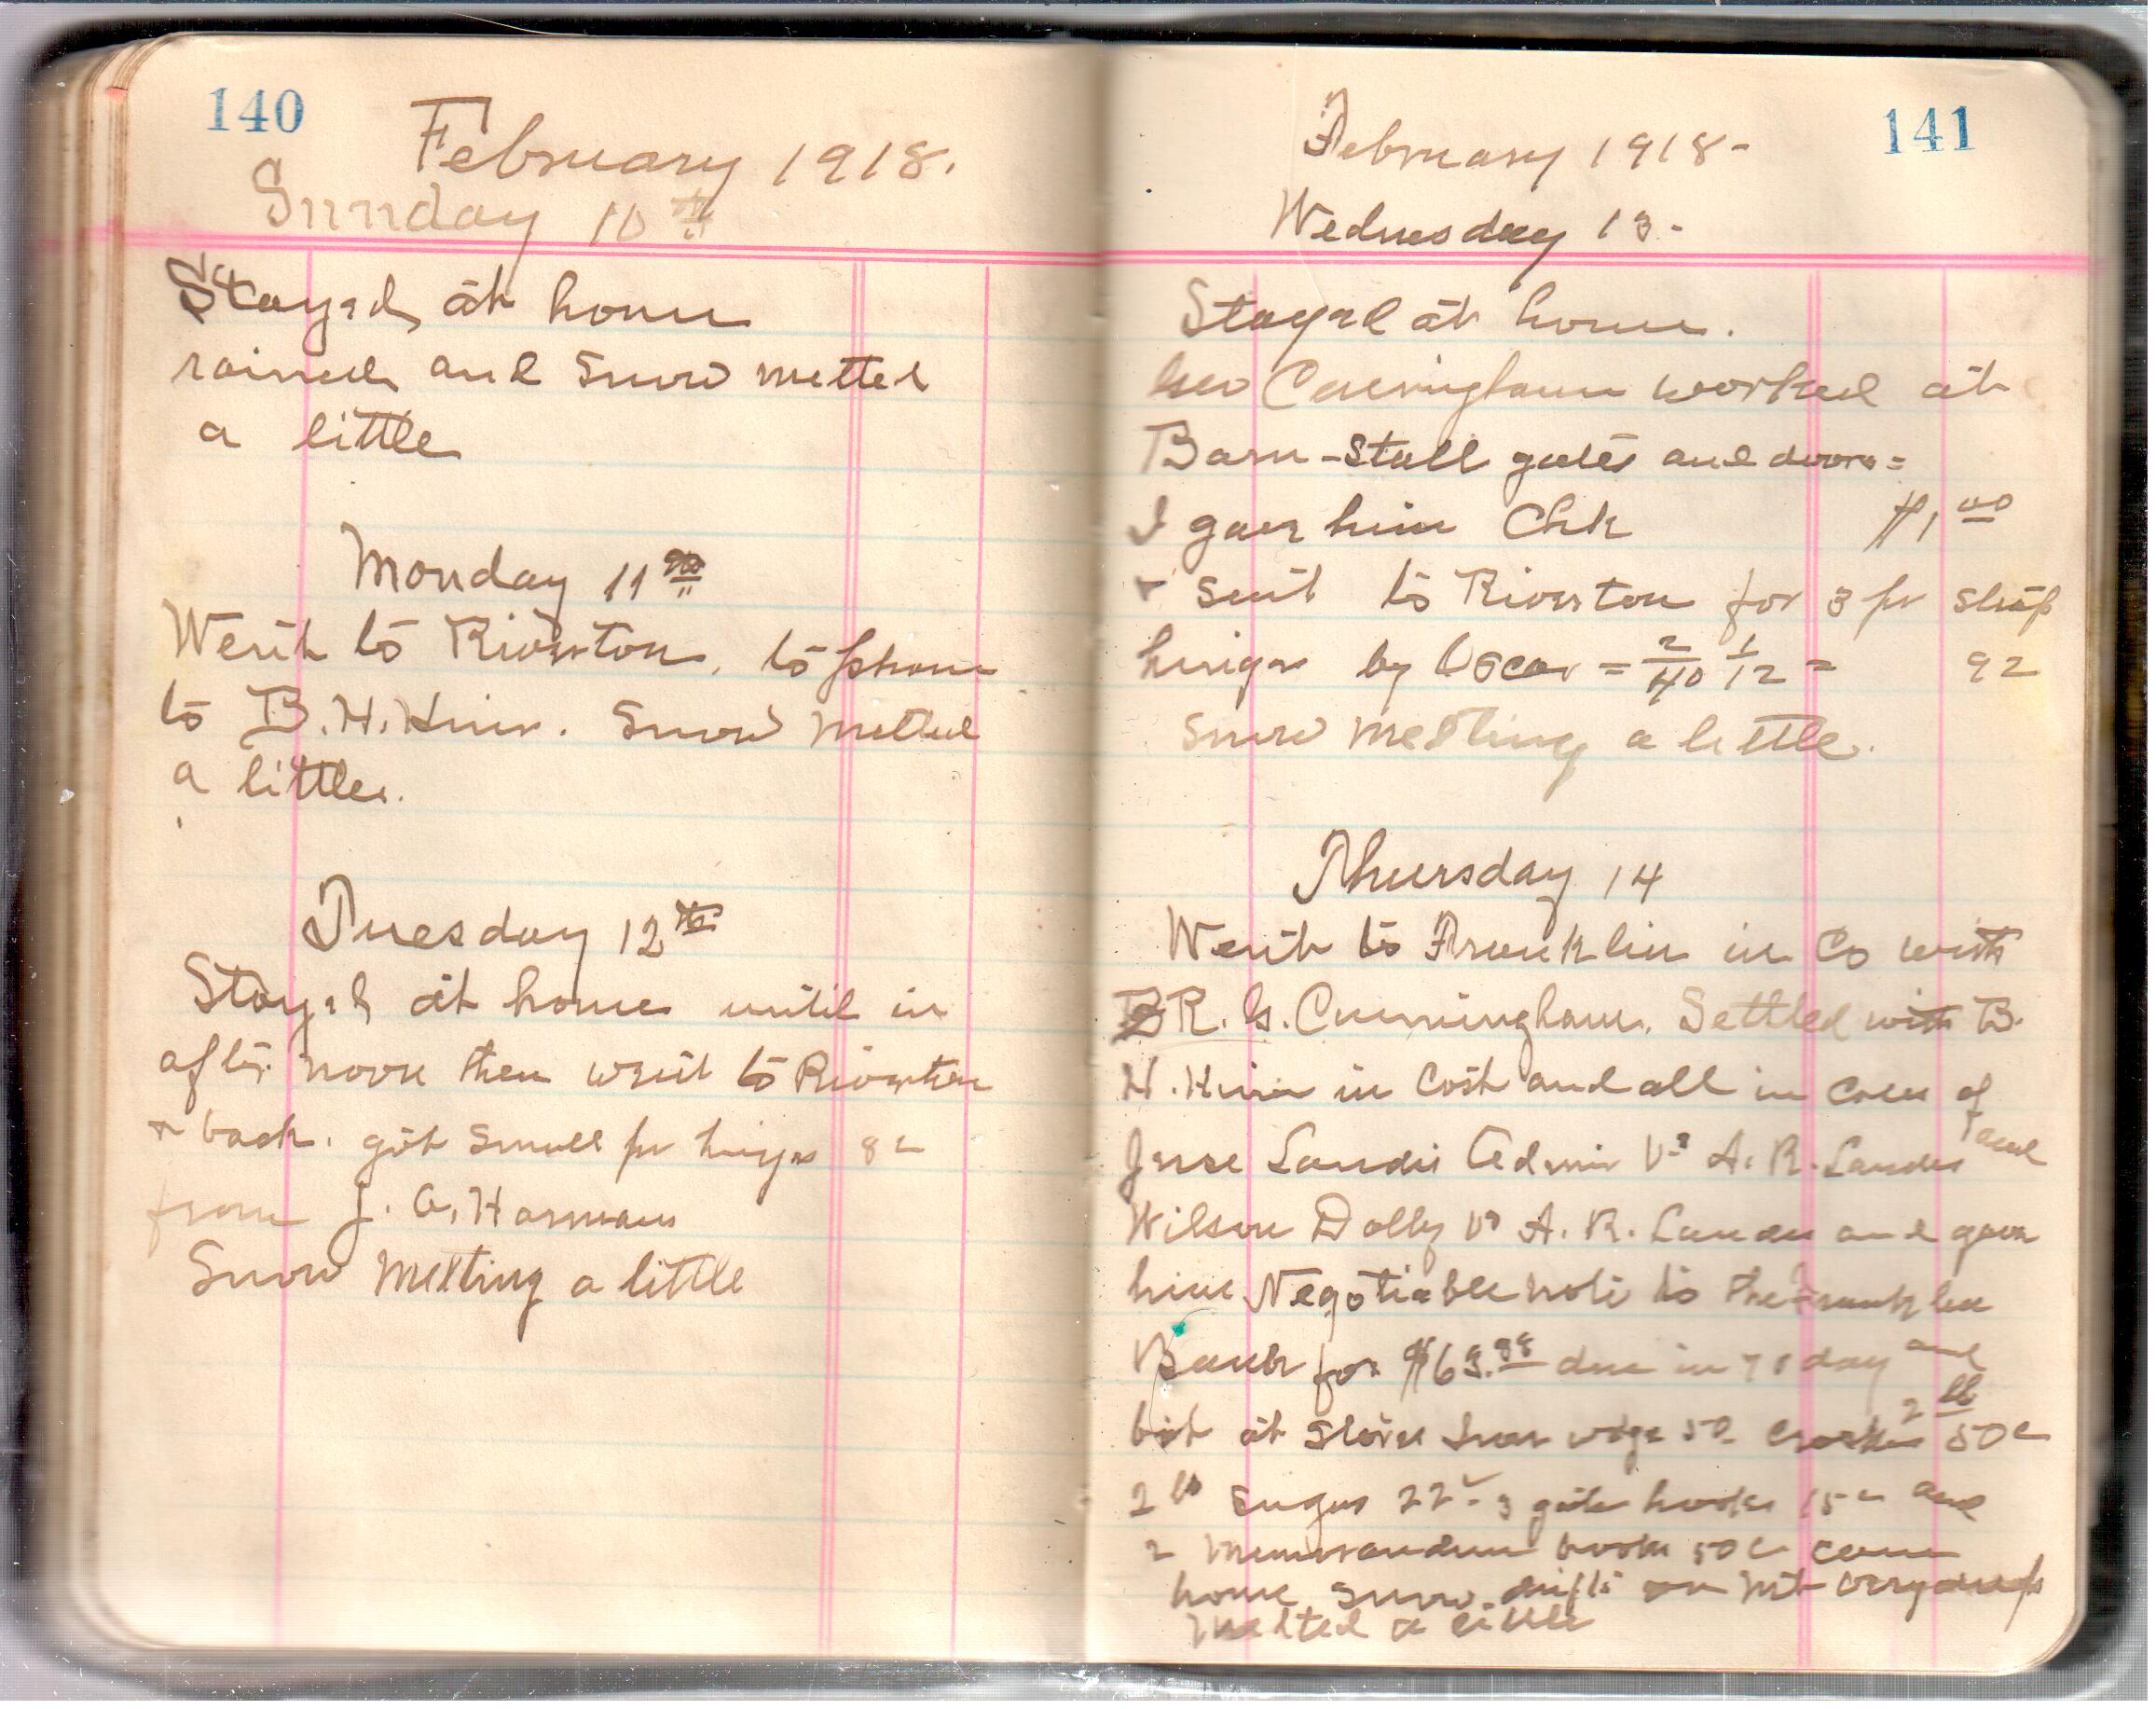 140
February 1918.
Sunday 10th
Stayed at home
rained and Snow melted
a little
Monday 11th
Went to Riverton, to phone
to B. H. Hiner. Snow melted
a little.
Tuesday 12th
Stayed at home until in
after noon then went to Riverton
& back. got small pr hinges 8c
from J. A. Harman
Snow melting a little
141
February 1918-
Wednesday 13-
Stayed at home.
Cunningham worked at
Barn-Stall gates and doors=
I gave him Chk $1.00
& sent to Riverton for 3 pr strap
hinges by Oscar = 2/40 1/12 = 92
Snow melting a little.
Thursday 14
Went to Franklin in Co with
R. G. Cunningham. Settled with B.
H. Hiner in Cost and all in Cases of
Jesse Landis Admir vs A. R. Landis and
Wilson Dolly vs A. R. Landes and gave
him Negotiable note to the Franklin
Bank for due in day and
bot at Store 50 2 lb 50c
2 lb Sugar 22c 3 gate hooks 15c and
2 Memorandum books 50c came
home Snow drifts on Mt very deep
Melted a little